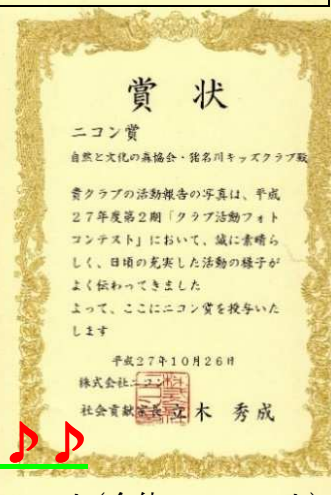 賞 状
ニコン賞
自然と文化の森協会・猪名川キッズクラブ殿
貴クラブの活動報告の写真は、平成
27年度第2期「クラブ活動フォト
コンテスト」において、誠に素晴ら
しく、日頃の充実した活動の様子が
よく伝わってきました
よって、ここにニコン賞を授与いた
します
平成27年10月26日
株式会社ニコン
社会貢献室長 立木 秀成
♪♪